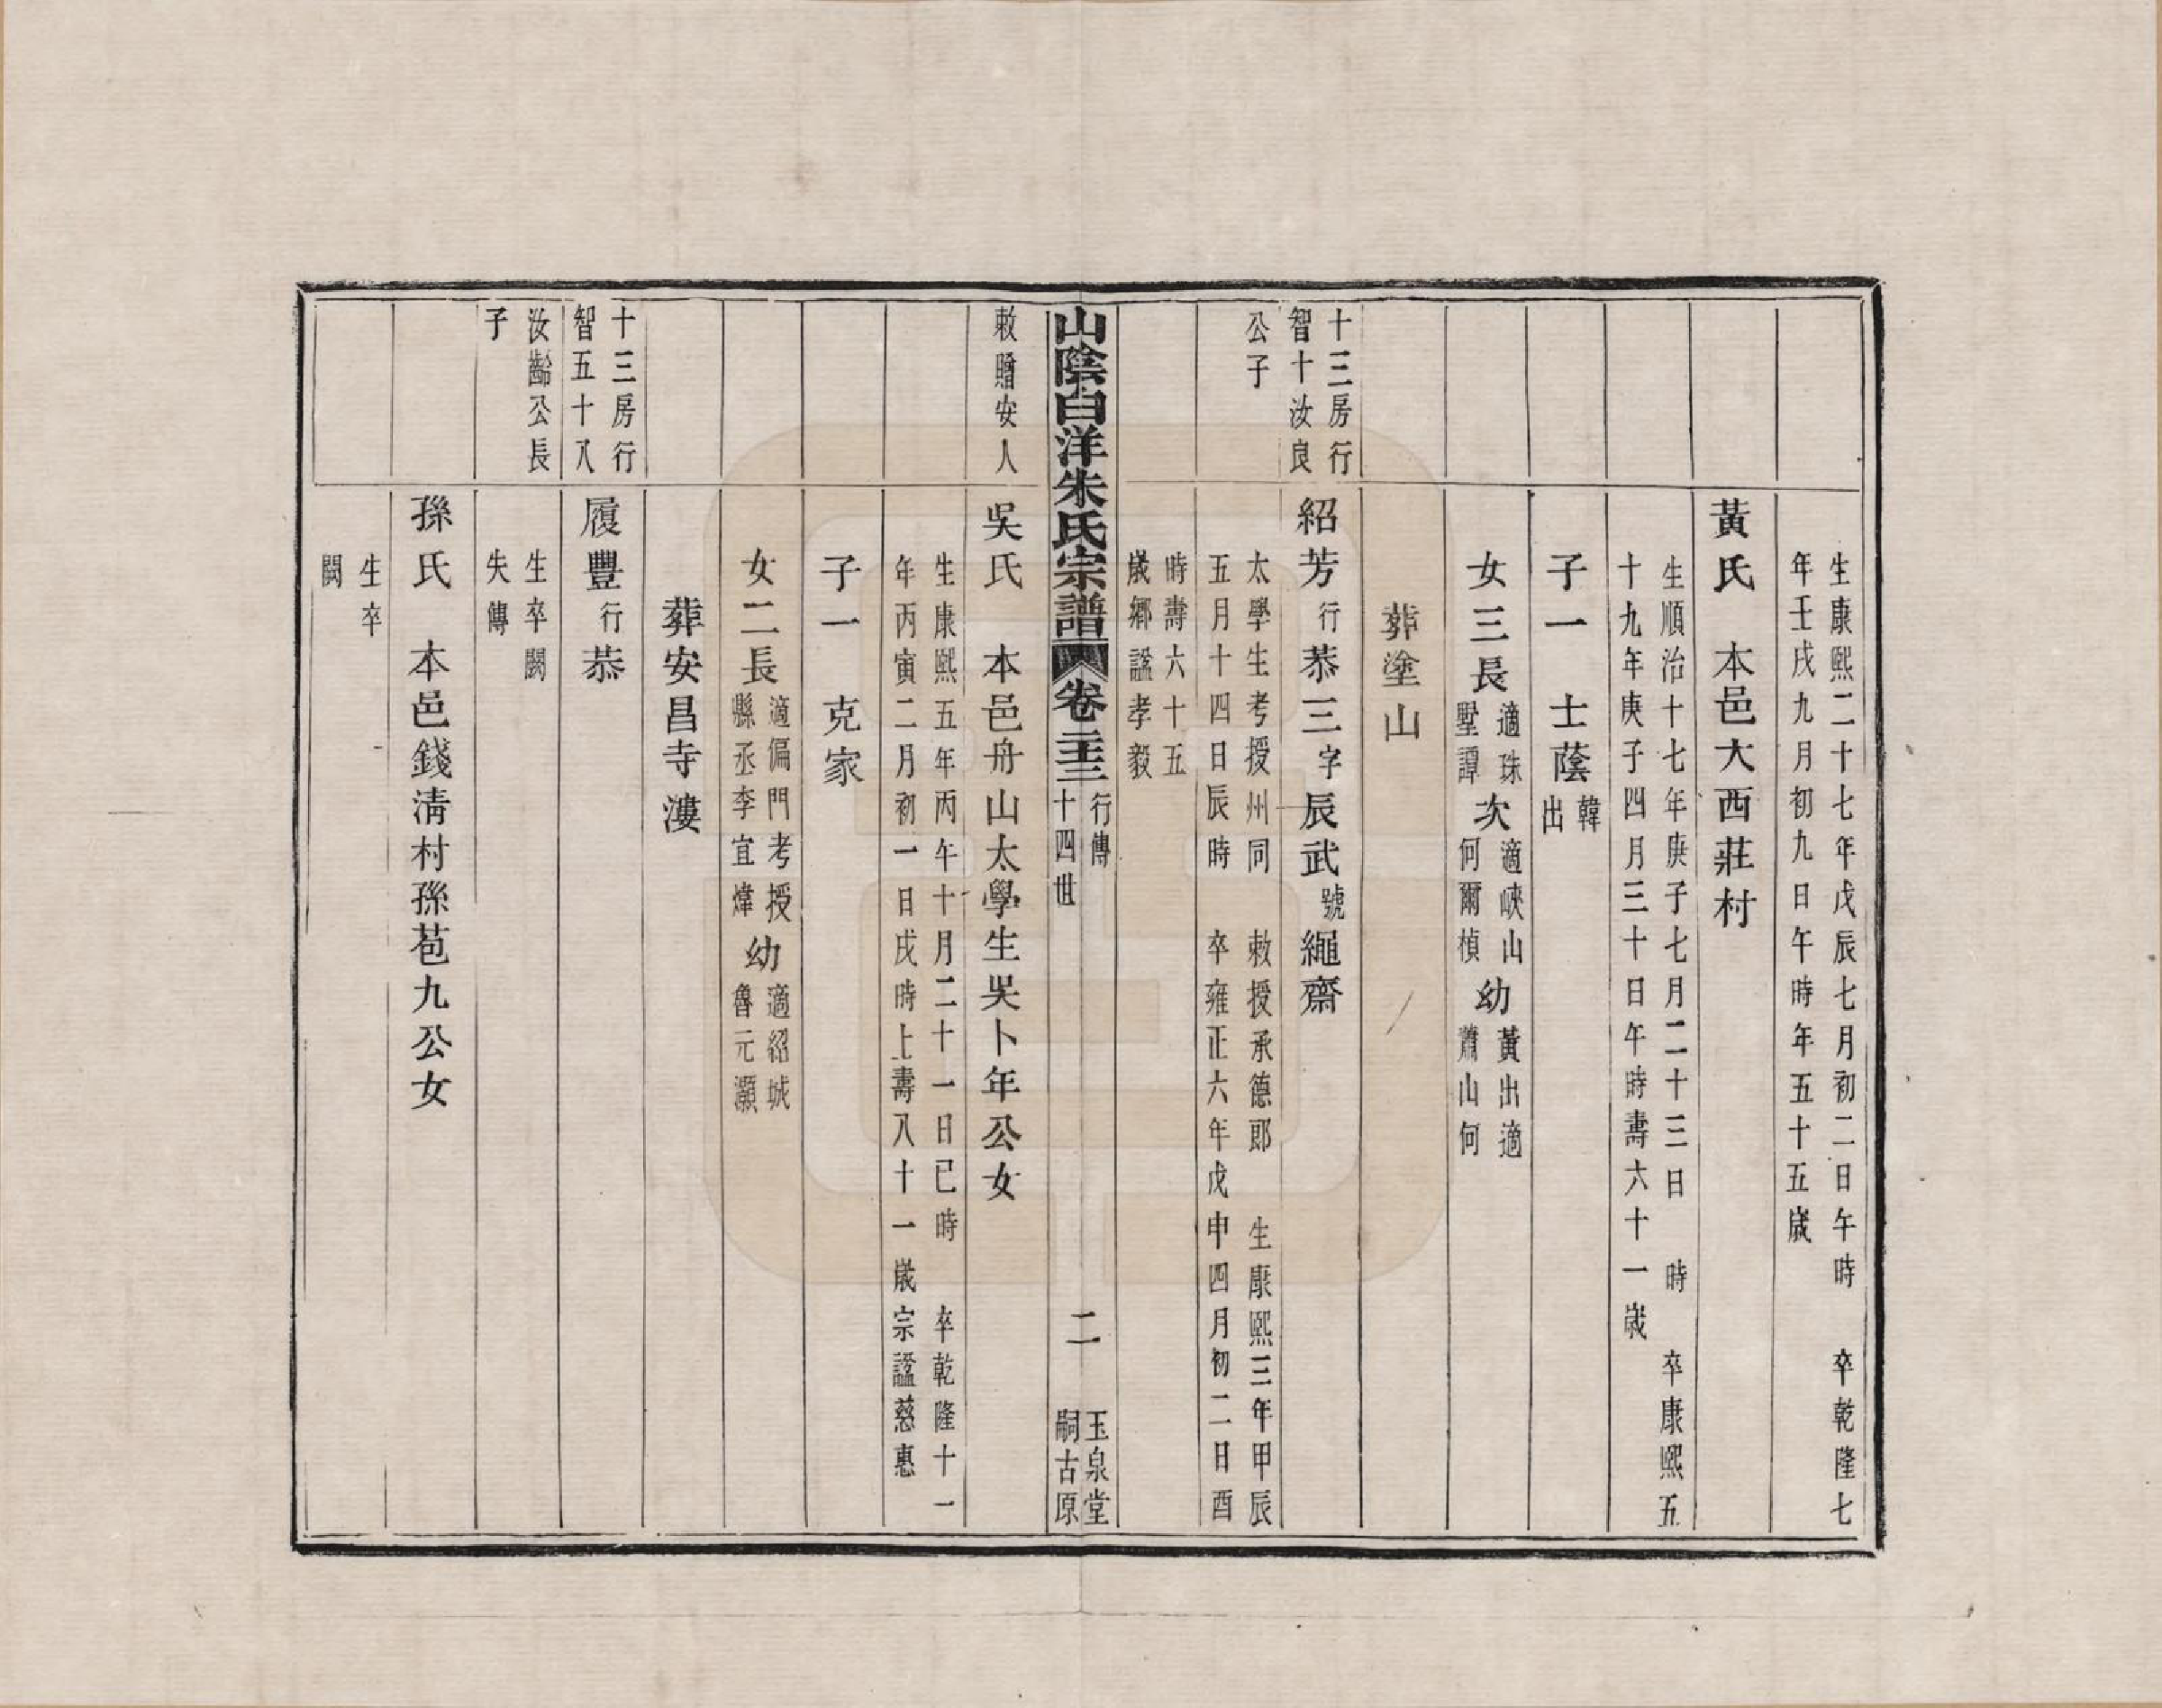 生康熙二十七年戊辰七月初二日午時　卒乾隆七
年壬戌九月初九日午時年五十五歲
黃氏　本邑大西莊村
生順治十七年庚子七月二十三日　時　卒康熙五
十九年庚子四月三十日午時壽六十一歲
子一　士蔭韓出
女三長適珠墅譚次適峽山何爾楨幼黃出適蕭山何
葬塗山
十三房行
智十汝良
公子
紹芳行恭三字辰武號繩齋
太學生考授州同　敕授承德郎　生康熙三年甲辰
五月十四日辰時　卒雍正六年戊申四月初二日酉
時壽六十五
歲鄉諡孝毅
山陰白洋朱氏宗譜　卷二十三　行傳十四世　二　玉泉堂嗣古原
敕贈安人
吳氏　本邑舟山太學生吳卜年公女
生康熙五年丙午十月二十一日巳時　卒乾隆十一
年丙寅二月初一日戌時上壽八十一歲宗諡慈惠
子一　克家
女二長適偏門考授縣丞李宜煒幼適紹城魯元灝
葬安昌寺漊
十三房行
智五十八
汝齡公長
子
履豐行恭
生卒闕
失傳
孫氏　本邑錢清村孫苞九公女
生卒
闕